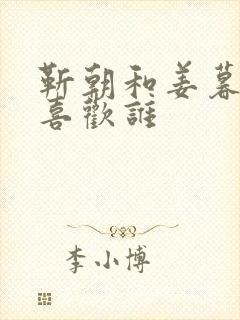 靳朝和姜暮
喜歡誰
李小博